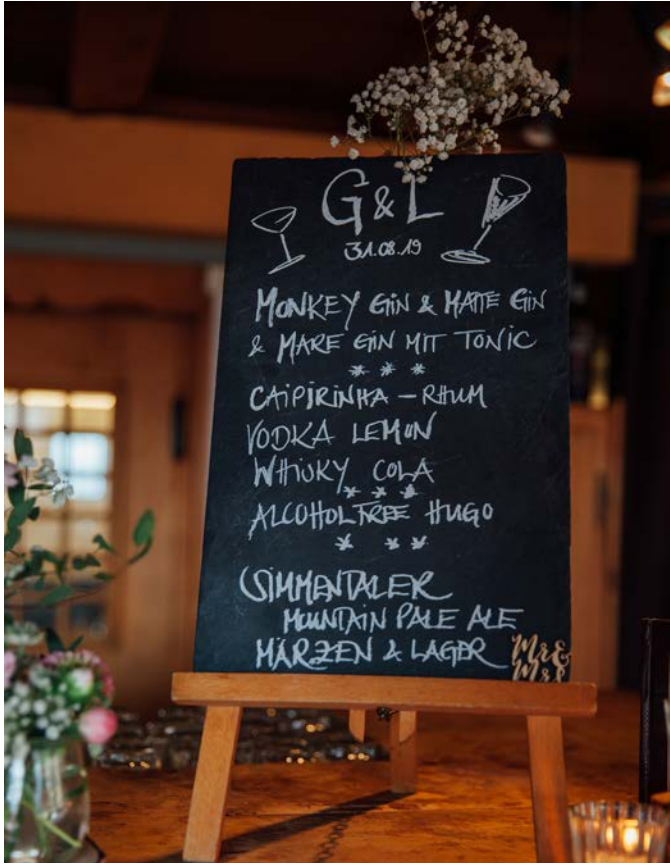 G & L
31.08.19
MONKEY GIN & MATTE GIN
& MARE GIN MIT TONIC
* * *
CAIPIRINHA – RHUM
VODKA LEMON
WHISKY COLA
* * *
ALCOHOLFREE HUGO
* * *
SIMMENTALER
MOUNTAIN PALE ALE
MÄRZEN & LAGER
Mr &
Mrs